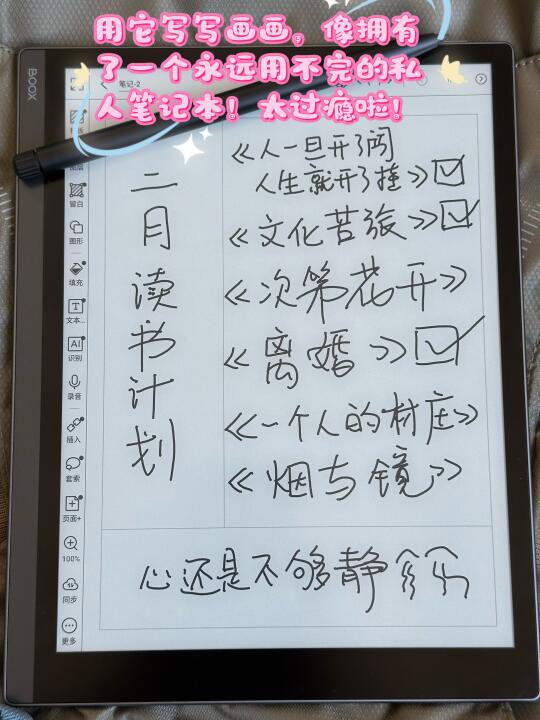 用它写写画画，像拥有
了一个永远用不完的私
人笔记本！太过瘾啦！
BOOX
笔记-2
留白
图形
填充
文本...
AI
识别
录音
插入
套索
页面+
100%
同步
更多
二月读书计划
《人一旦开了闭
人生就开了挂》
《文化苦旅》
《次第花开》
《离婚》
《一个人的村庄》
《烟与镜》
心还是不够静